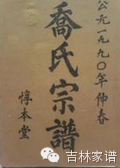 公元一九九〇年仲春
喬氏宗譜
惇本堂
吉林家谱